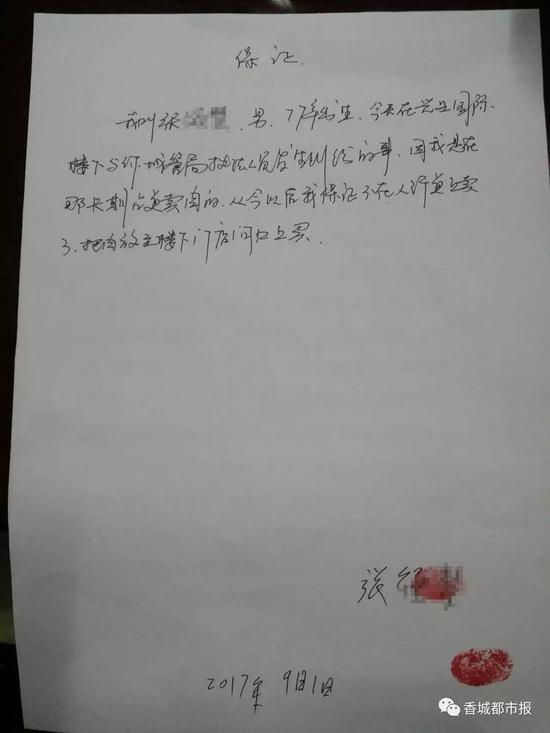 保证.
我叫张 男. 77年出生. 今天在兴王国际.
楼下与 城管局执法人员发生纠纷的事, 因我是在
那长期占道卖肉的. 从今以后我保证不在人行道上卖
了. 把肉放在楼下门店门口上买.
张
2017年 9月1日
香城都市报